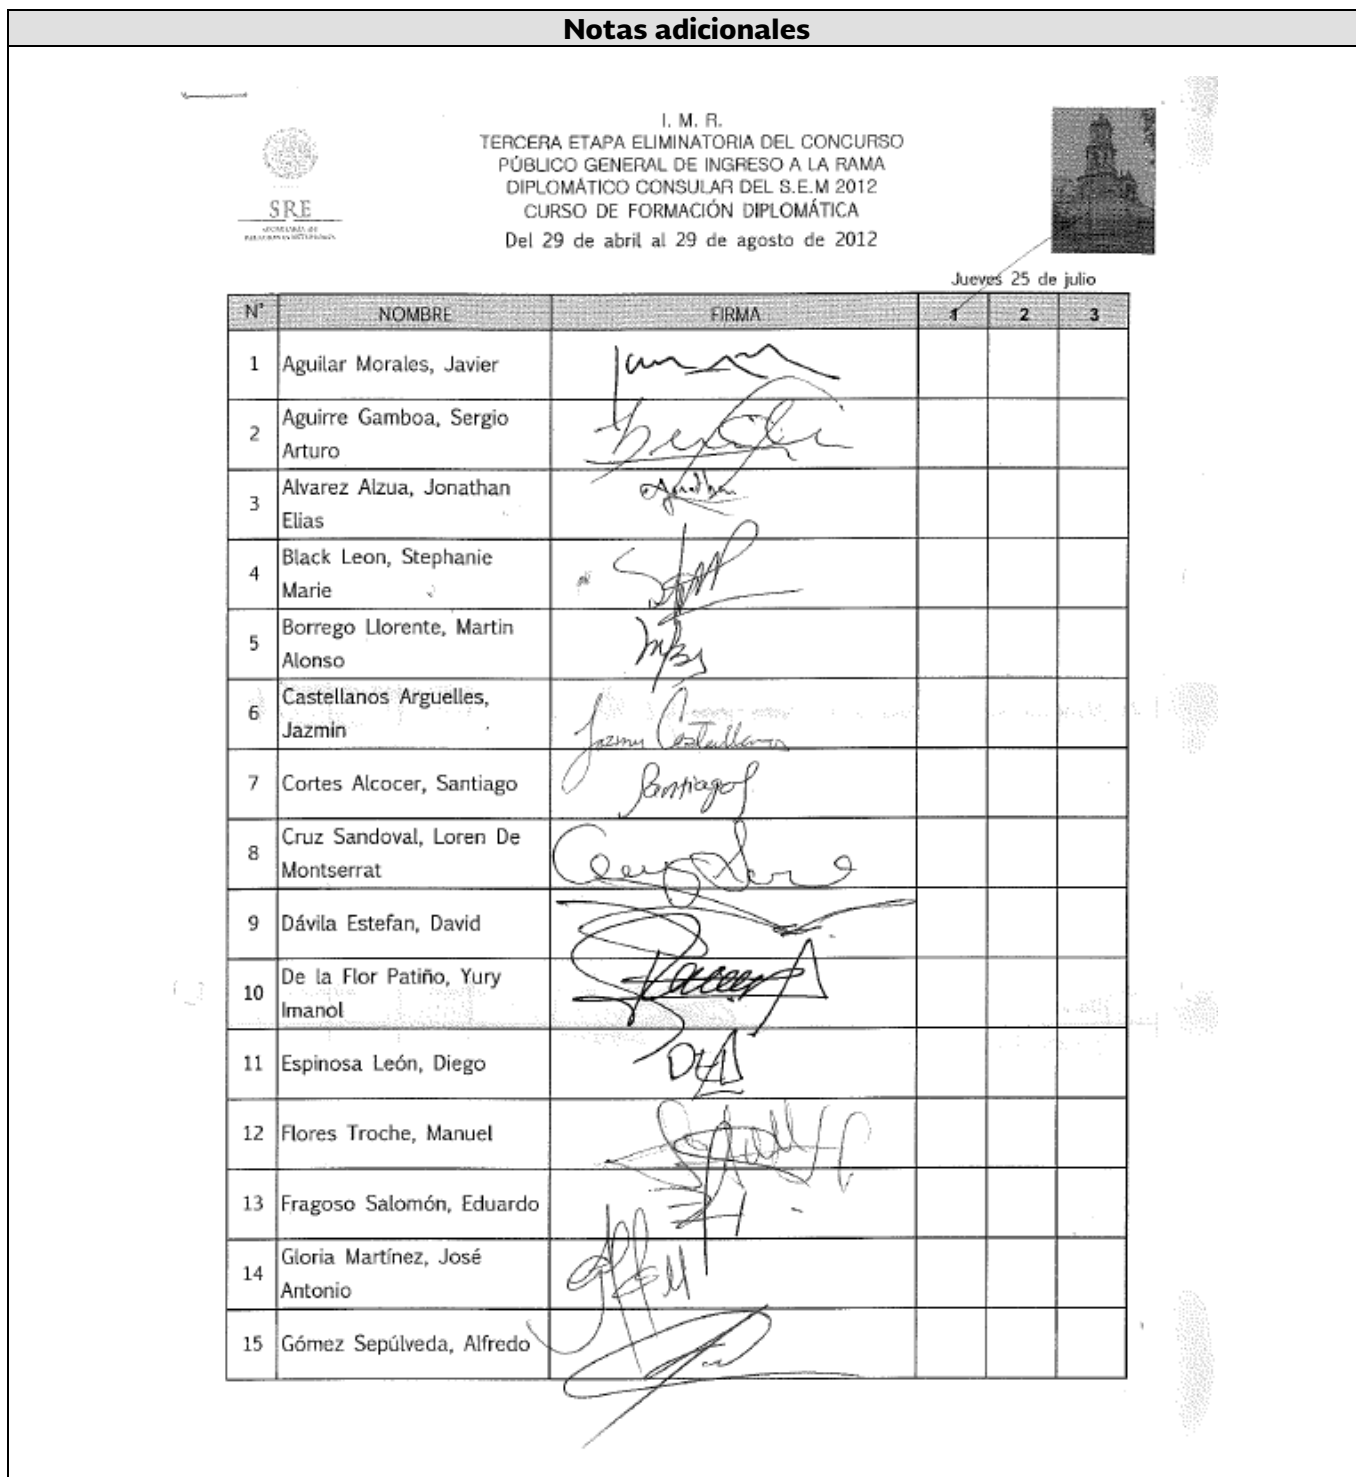 Notas adicionales
I. M. R.
TERCERA ETAPA ELIMINATORIA DEL CONCURSO
PÚBLICO GENERAL DE INGRESO A LA RAMA
DIPLOMÁTICO CONSULAR DEL S.E.M 2012
CURSO DE FORMACIÓN DIPLOMÁTICA
Del 29 de abril al 29 de agosto de 2012
SRE
SECRETARÍA DE
RELACIONES EXTERIORES
Jueves 25 de julio
N° NOMBRE FIRMA 1 2 3
1 Aguilar Morales, Javier
2 Aguirre Gamboa, Sergio
Arturo
3 Alvarez Alzua, Jonathan
Elias
Jonathan
4 Black Leon, Stephanie
Marie
5 Borrego Llorente, Martin
Alonso
6 Castellanos Arguelles,
Jazmin
Jazmin Castellanos
7 Cortes Alcocer, Santiago
Santiago
8 Cruz Sandoval, Loren De
Montserrat
9 Dávila Estefan, David
10 De la Flor Patiño, Yury
Imanol
11 Espinosa León, Diego
12 Flores Troche, Manuel
13 Fragoso Salomón, Eduardo
14 Gloria Martínez, José
Antonio
15 Gómez Sepúlveda, Alfredo